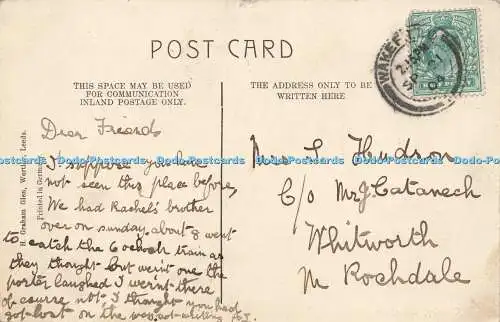 POST CARD
THIS SPACE MAY BE USED
FOR COMMUNICATION
INLAND POSTAGE ONLY.
THE ADDRESS ONLY TO BE
WRITTEN HERE
H. Graham Glen, Leeds.
Printed in
Dear Friends
I suppose you have
not seen this place before,
We had Rachel's brother
over on sunday. about 8 went
to catch the 6 oclock train as
they thought but wernt one the
porter laughed I wernt there
of course not, I thought you had
got lost on the way not writing
L Hudson
C/o Mr J. Catanech
Whitworth
Nr Rochdale
WAKEF
Dodo-Postcards Dodo-Postcards Dodo-Postcards